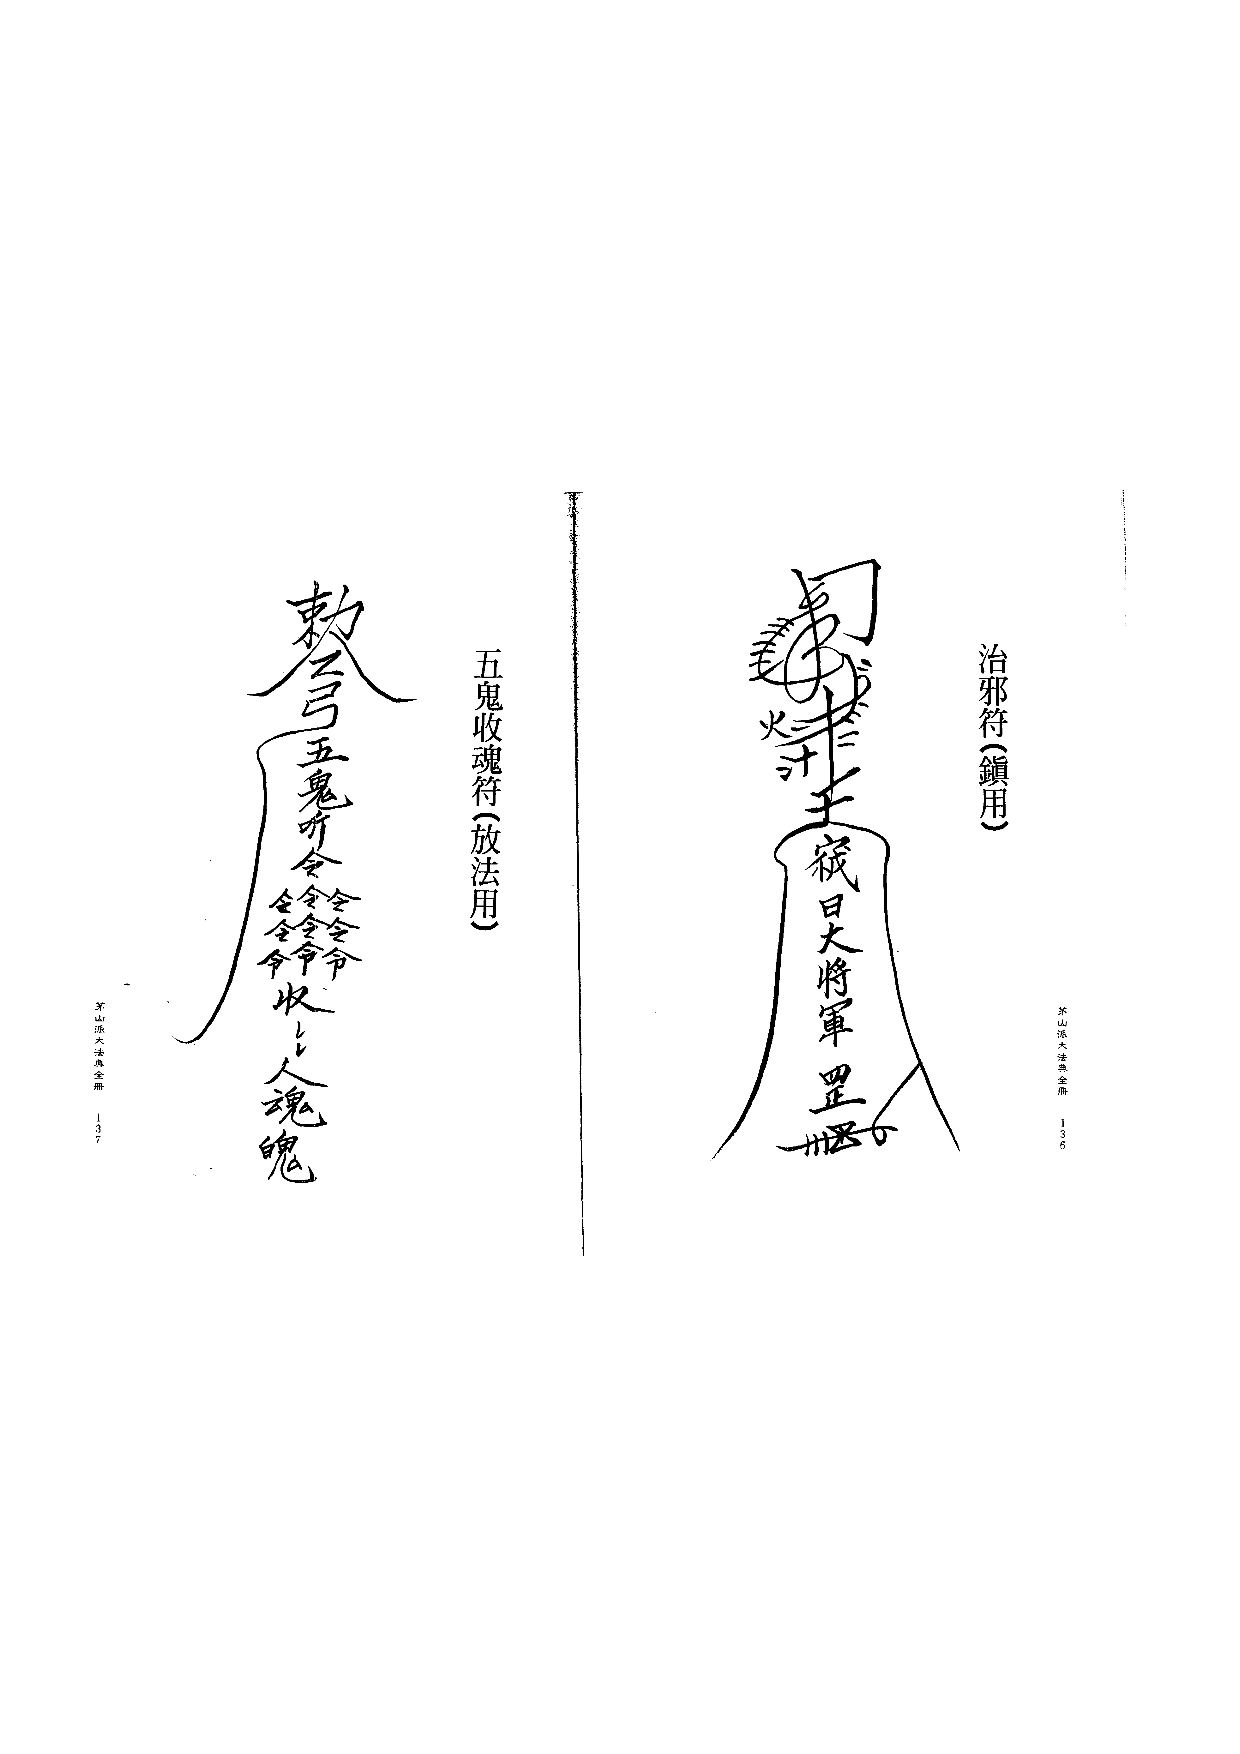 治邪符(鎮用)
火
日大將軍
罡
茅山派大法典全冊 136
五鬼收魂符(放法用)
勅
弓
五鬼听令
令令令
令令令
令令令
收
人魂魄
茅山派大法典全冊 137